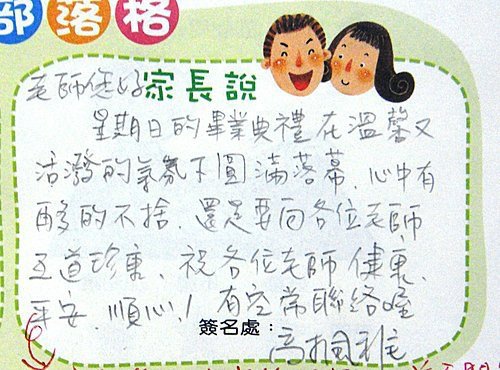 部落格
老師您好 家長說
星期日的畢業典禮在溫馨又
活潑的氣氛下圓滿落幕,心中有
的不捨,還是要向各位老師
互道珍重、祝各位老師健康、
平安、順心!有空常聯絡喔
簽名處: